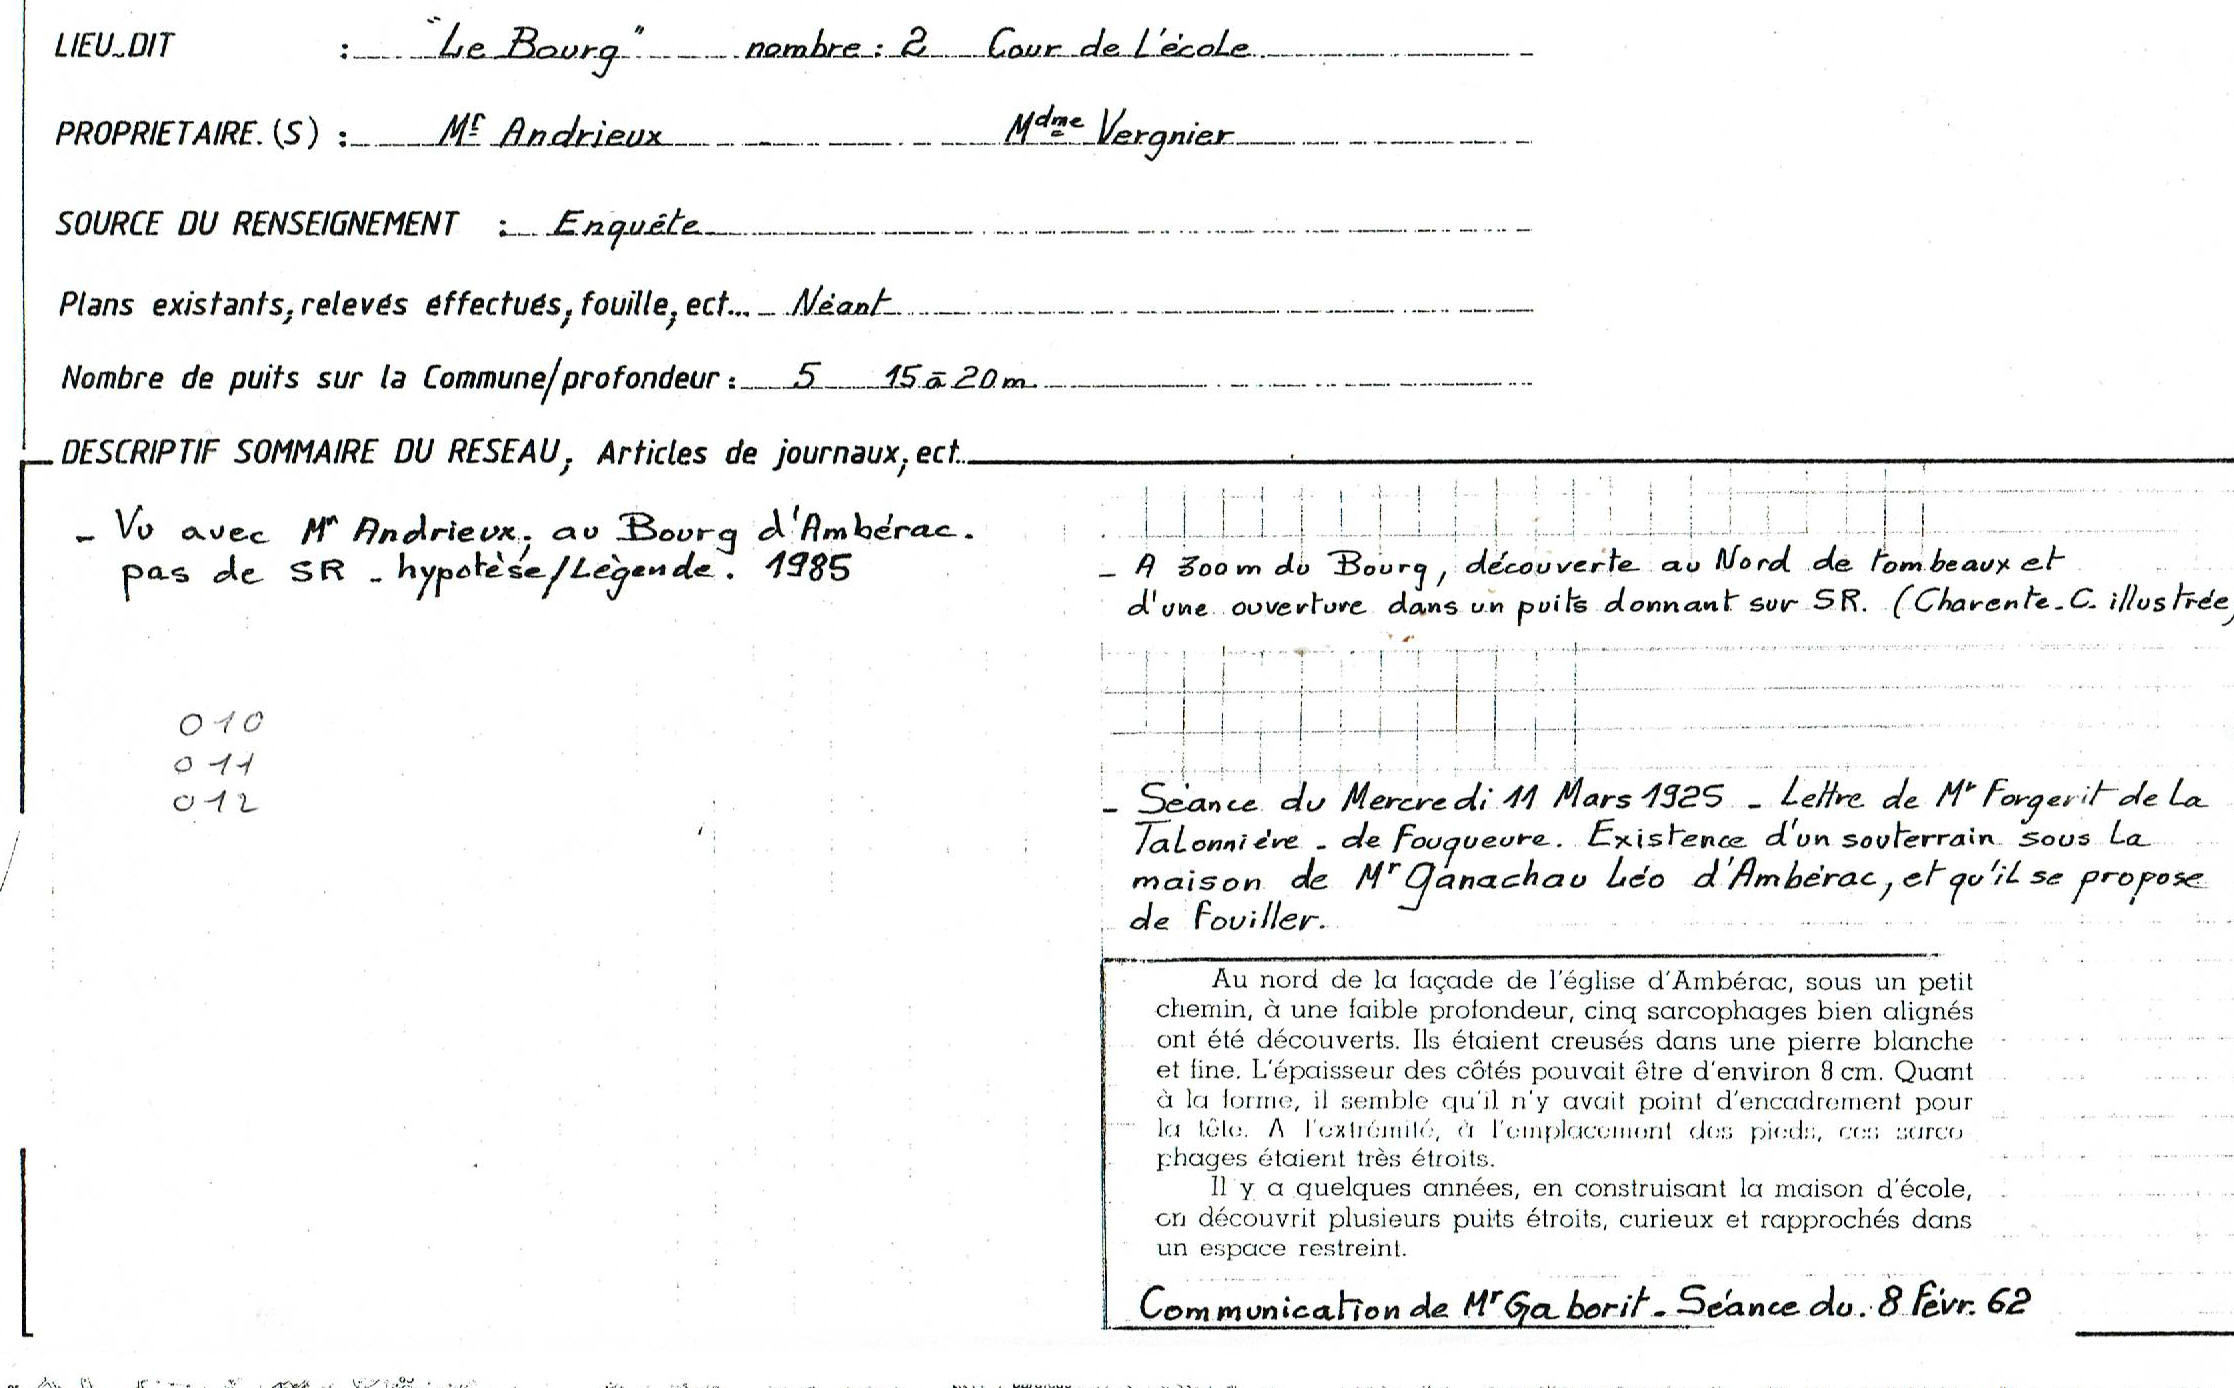 LIEU-DIT : "Le Bourg" nombre : 2 Cour de L'école
PROPRIETAIRE.(S) : Mr Andrieux Mdme Vergnier
SOURCE DU RENSEIGNEMENT : Enquête
Plans existants, relevés éffectués, fouille, ect... Néant
Nombre de puits sur la Commune/profondeur : 5 15 à 20m.
DESCRIPTIF SOMMAIRE DU RESEAU, Articles de journaux, ect...
- Vu avec Mr Andrieux, au Bourg d'Ambérac.
pas de SR - hypotèse/Lègende. 1985
010
011
012
- A 300m du Bourg, découverte au Nord de tombeaux et
d'une ouverture dans un puits donnant sur SR. (Charente.C. illustrée)
- Séance du Mercredi 11 Mars 1925 - Lettre de Mr Forgerit de La
Talonnière - de Fouqueure. Existence d'un souterrain sous La
maison de Mr Ganachau Léo d'Ambérac, et qu'il se propose
de fouiller.
Au nord de la façade de l'église d'Ambérac, sous un petit
chemin, à une faible profondeur, cinq sarcophages bien alignés
ont été découverts. Ils étaient creusés dans une pierre blanche
et fine. L'épaisseur des côtés pouvait être d'environ 8 cm. Quant
à la forme, il semble qu'il n'y avait point d'encadrement pour
la tête. A l'extrémité, à l'emplacement des pieds, ces sarco
phages étaient très étroits.
Il y a quelques années, en construisant la maison d'école,
on découvrit plusieurs puits étroits, curieux et rapprochés dans
un espace restreint.
Communication de Mr Gaborit - Séance du 8 Févr. 62